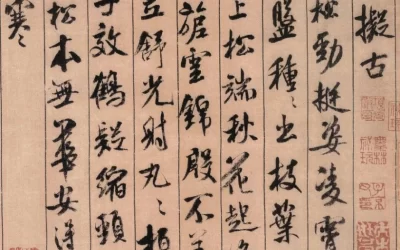 擬古
松勁挺姿凌霄
盤種〻出枝葉
上松端秋花起
旎雲錦殷不
立舒光射丸〻柏
子效鶴疑縮頸
松本無華安得
寒〻